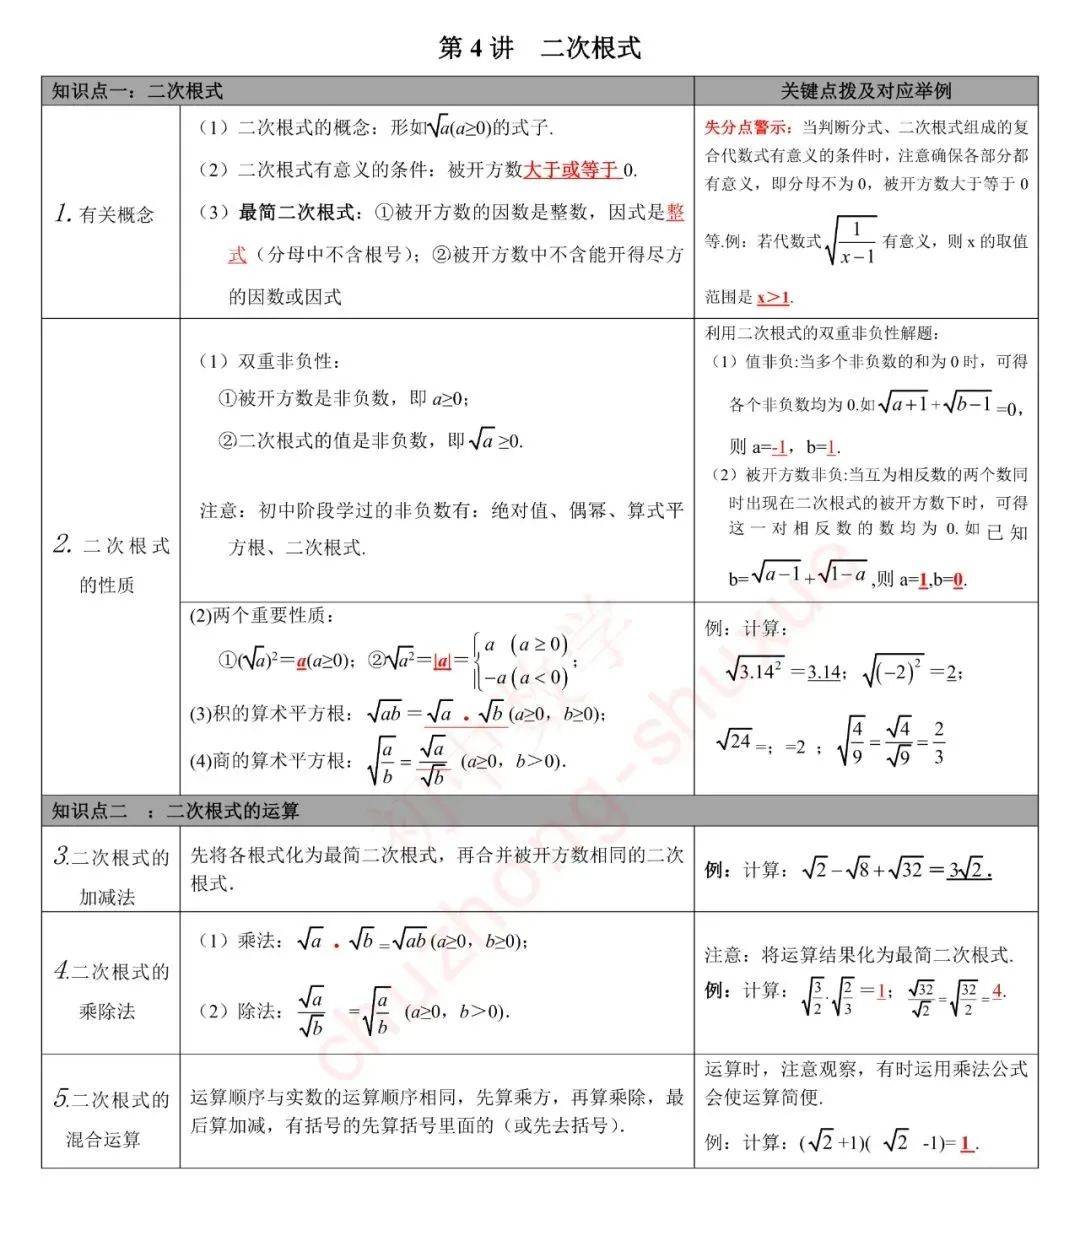 第 4 讲 二次根式
知识点一：二次根式
关键点拨及对应举例
1. 有关概念
（1）二次根式的概念：形如√a(a≥0)的式子.
（2）二次根式有意义的条件：被开方数大于或等于 0.
（3）最简二次根式：①被开方数的因数是整数，因式是整
式（分母中不含根号）；②被开方数中不含能开得尽方
的因数或因式
失分点警示：当判断分式、二次根式组成的复
合代数式有意义的条件时，注意确保各部分都
有意义，即分母不为 0，被开方数大于等于 0
等.例：若代数式 √(1/(x－1)) 有意义，则 x 的取值
范围是 x＞1.
2. 二次根式
的性质
（1）双重非负性：
①被开方数是非负数，即 a≥0；
②二次根式的值是非负数，即√a ≥0.
注意：初中阶段学过的非负数有：绝对值、偶幂、算式平
方根、二次根式.
利用二次根式的双重非负性解题：
（1）值非负:当多个非负数的和为 0 时，可得
各个非负数均为 0.如√(a+1)+√(b−1)=0，
则 a=-1，b=1.
（2）被开方数非负:当互为相反数的两个数同
时出现在二次根式的被开方数下时，可得
这一对相反数的数均为 0.如已知
b=√(a−1)+√(1−a),则 a=1,b=0.
(2)两个重要性质：
①(√a)²＝a(a≥0)；②√a²＝|a|＝{a (a≥0) −a (a<0)；
(3)积的算术平方根：√ab＝√a · √b (a≥0，b≥0)；
(4)商的算术平方根：√(a/b) = √a/√b (a≥0，b＞0).
例：计算：
√3.14² =3.14；√(−2)² =2；
√24 =；=2 ；√(4/9) = √4/√9 = 2/3
知识点二 ：二次根式的运算
3.二次根式的
加减法
先将各根式化为最简二次根式，再合并被开方数相同的二次
根式.
例：计算：√2−√8+√32＝3√2.
4.二次根式的
乘除法
（1）乘法：√a · √b =√ab (a≥0，b≥0)；
（2）除法：√a/√b =√(a/b) (a≥0，b＞0).
注意：将运算结果化为最简二次根式.
例：计算：√(3/2)·√(2/3)＝1；√32/√2=√(32/2)=4.
5.二次根式的
混合运算
运算顺序与实数的运算顺序相同，先算乘方，再算乘除，最
后算加减，有括号的先算括号里面的（或先去括号）.
运算时，注意观察，有时运用乘法公式
会使运算简便.
例：计算：(√2 +1)( √2 -1)= 1 .
初中数学
chuzhong-shuxue